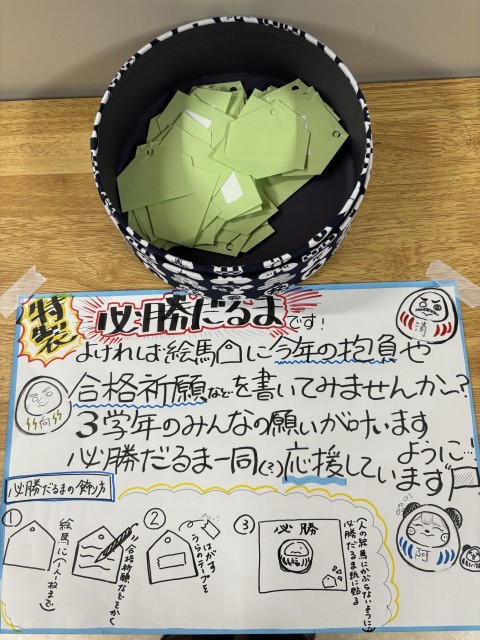 特製
必勝だるまです!
よければ絵馬に今年の抱負や
合格祈願などを書いてみませんか~?
3学年のみんなの願いが叶います
ように!
必勝だるま一同(?)応援しています
必勝だるまの飾り方
①
絵馬に(1人1枚まで)
合格祈願などをかく
②
うらのテープを
はがす
③
必勝
人の絵馬にかぶらないように!!
必勝だるま紙に貼る